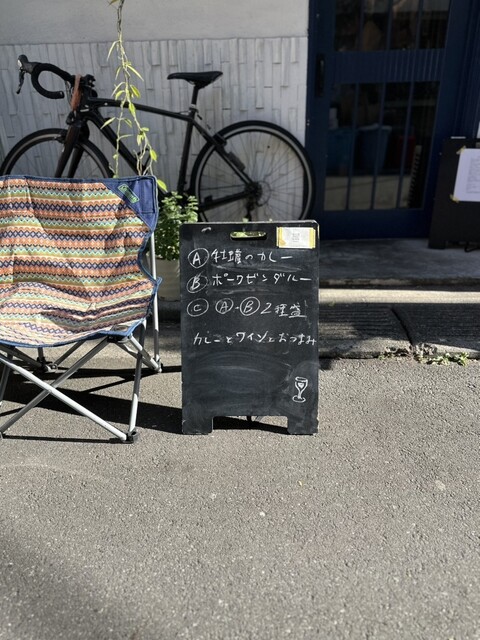 Ⓐ 牡蠣のカレー
Ⓑ ポークビンダルー
Ⓒ Ⓐ・Ⓑ 2種盛
カレーとワインとおつまみ